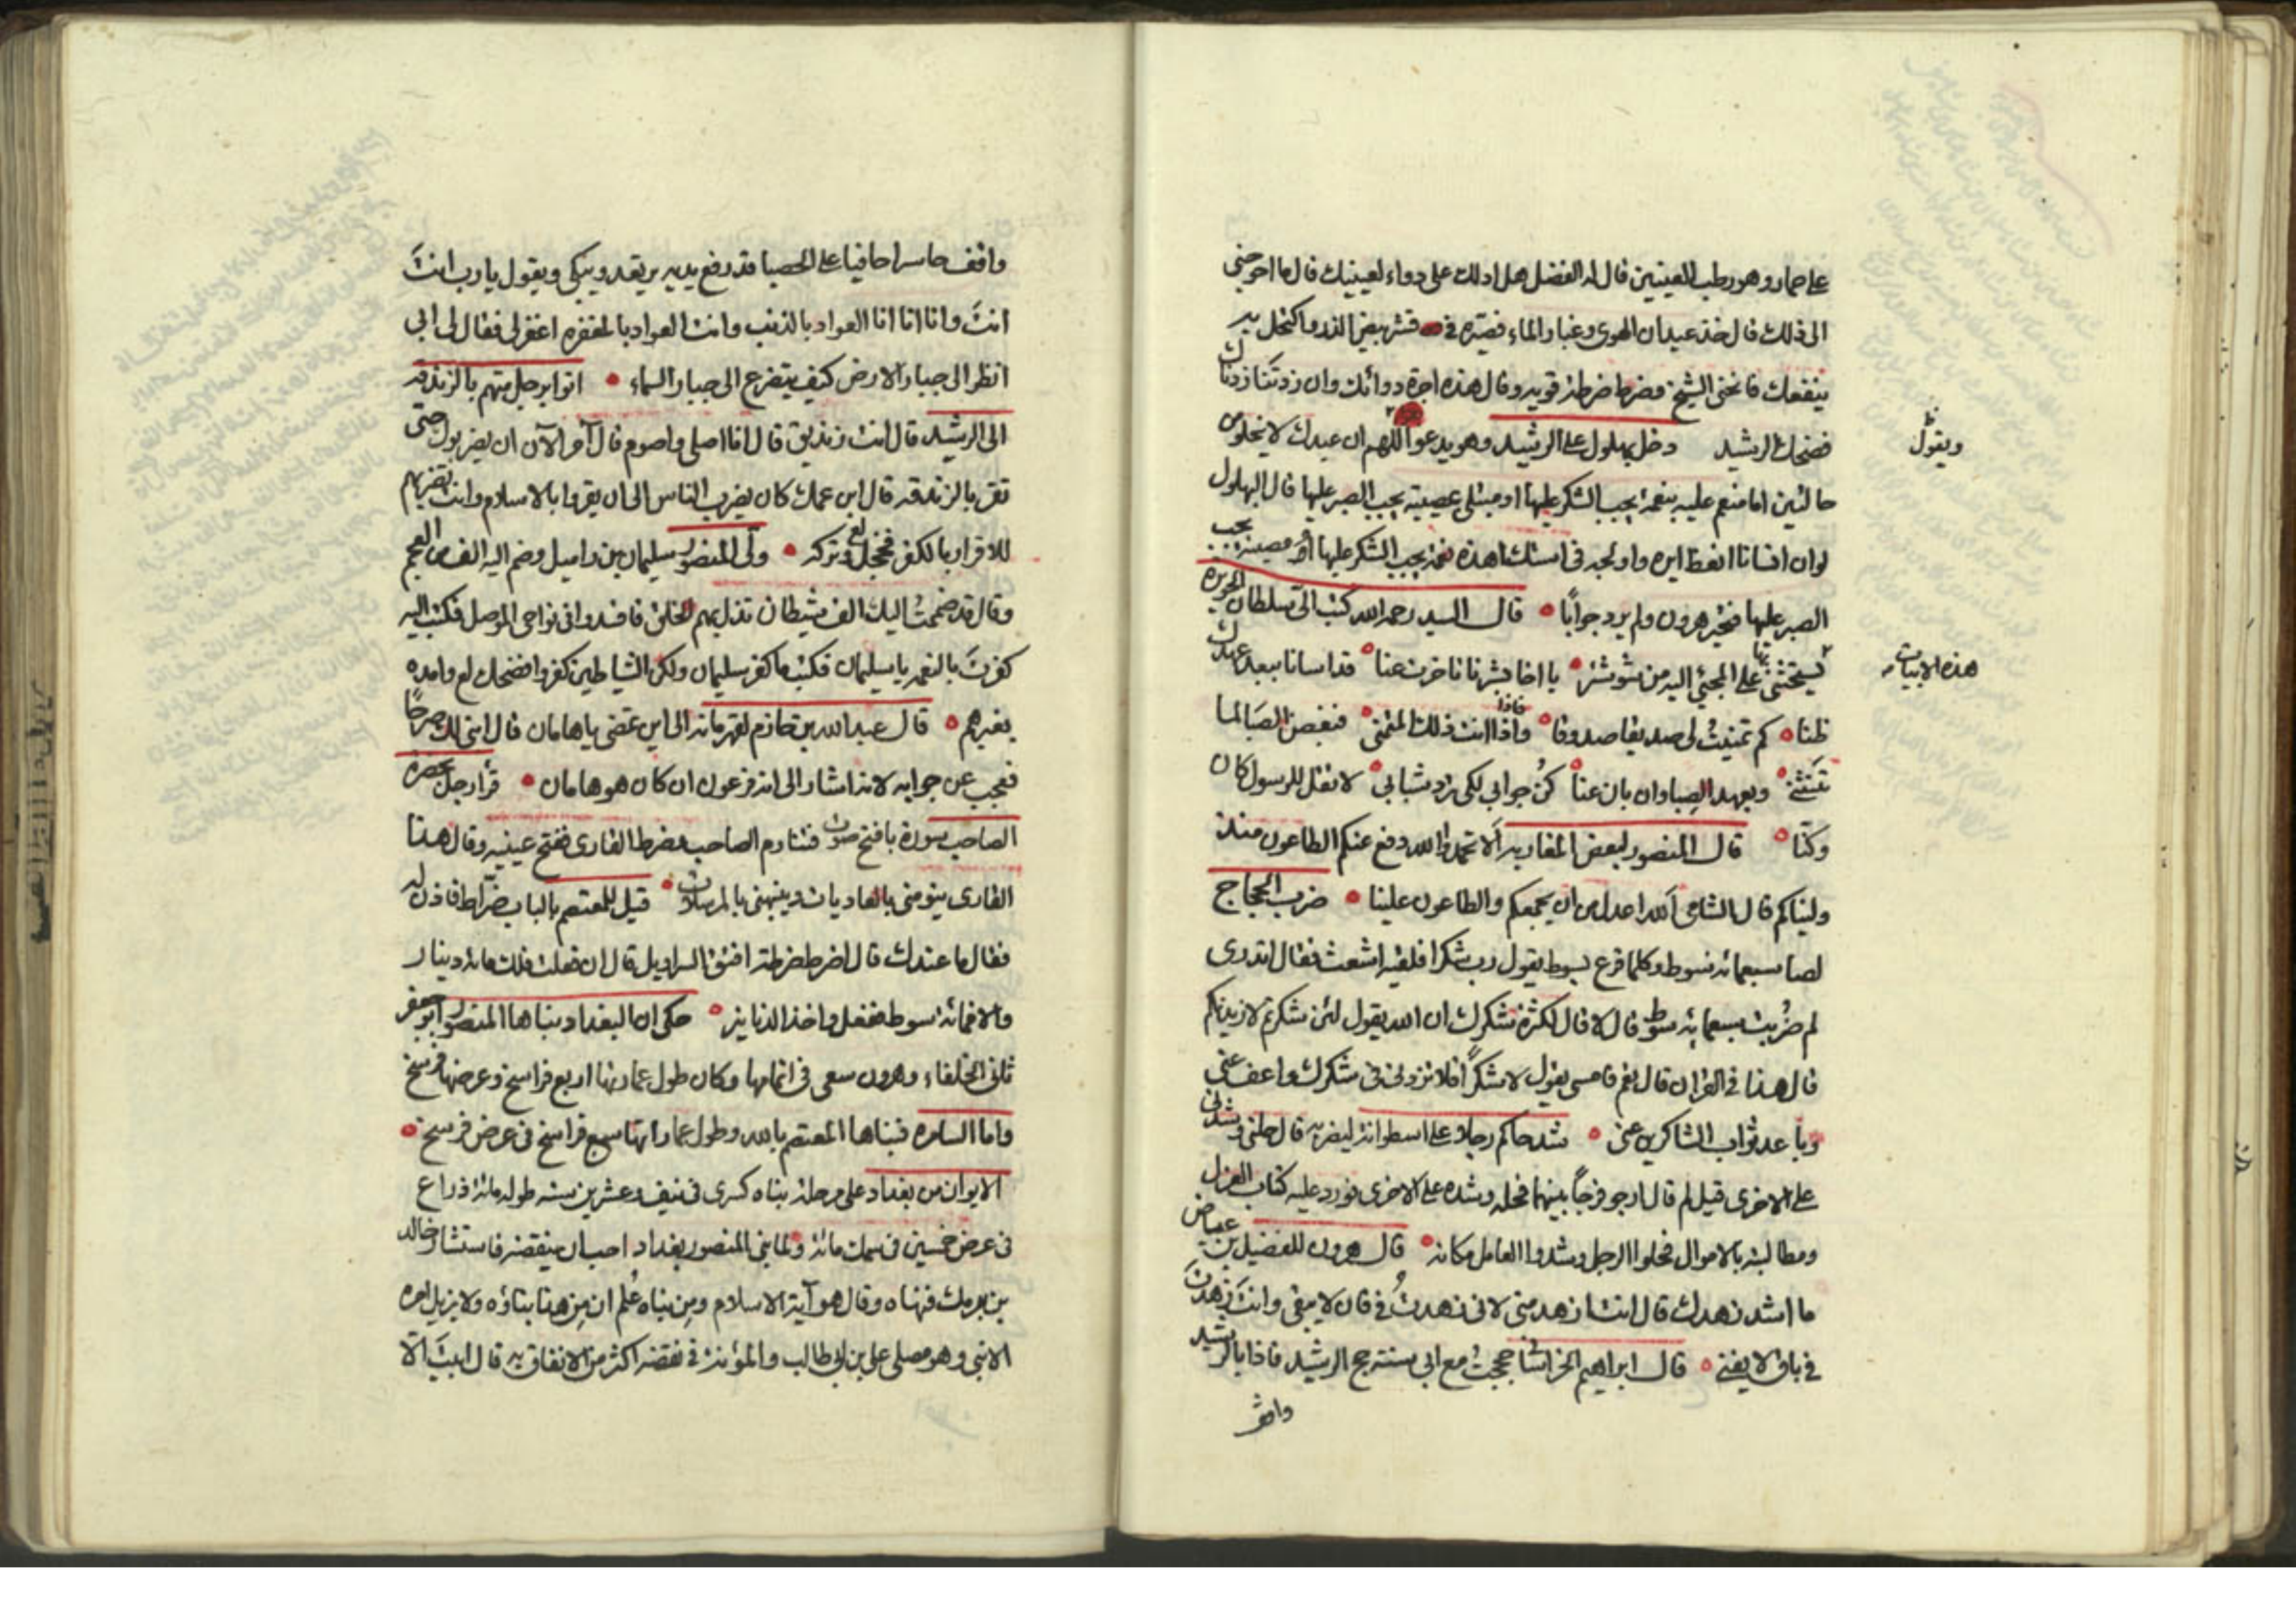 على حمار وهو رطب العينين قال له الفضل هل ادلك على دواء لعينيك قال ما احوجنى
الى ذلك قال خذ عيدان الهوى وغبار الماء فصيّره فى قشر بيض الذر واكتحل به
ينفعك فانحنى الشيخ وضرط ضرطة قوية وقال هذه اجرة دوائك وان زدتنا زدناك
فضحك الرشيد دخل بهلول على الرشيد وهو يدعو اللهم ان عبدك لا يخلو من
ويقول
حالتين اما منعم عليه بنعمة يجب الشكر عليها او مبتلى بمصيبة يجب الصبر عليها قال البهلول
لو ان انسانا انعظ ايره واولجه فى استك اهذه نعمة يجب الشكر عليها او مصيبة يجب
الصبر عليها فتحير هرون ولم يرد جوابًا قال السيد رحمه الله كتب الى سلطان الحويزه
هذه الابيات
يستحثنى بها على المجئ اليه من شوشتر يا اخا بشرنا تاخرت عنا قد اسانا ببعد عهدك
ظنا كم تمنيتُ لى صديقا صدوقا فاذا انت ذلك المتمنى فبغصن الصبا لما
تثنى وبعهد الصبا وان بان عنا كن جوابى لكى ترد شبابى لا تقل للرسول كان
وكنّا قال المنصور لبعض المغاربه ألا تحمدوا الله دفع عنكم الطاعون منذ
وليناكم قال الشامى الله اعدل من ان يجمعكم والطاعون علينا ضرب الحجاج
لصا سبعمائة سوط وكلما قرع بسوط يقول رب شكرا فلقيه اشعث فقال اتدرى
لم ضُربت سبعمائة سوط قال لا قال لكثرة شكرك ان الله يقول لئن شكرتم لازيدنكم
قال هذا فى القران قال نعم فامسى يقول لا شكرًا فلا تزدنى فى شكرك واعف عنى
وباعد ثواب الشاكرين عنى شد حاكم رجلا على اسطوانة ليضربه قال حلنى وشدنى
على الاخرى قيل لم قال ارجو فرجًا بينهما فحله وشده على الاخرى فورد عليه كتاب العزل
ومطالبته بالاموال فحلوا الرجل وشدوا العامل مكانه قال هرون للفضيل بن عياض
ما اشد زهدك قال انت ازهد منى لانى زهدتُ فى فان لا يبقى وانتَ زهدتَ
فى باق لا يفنى قال ابراهيم الخراسانى حججتُ مع ابى سنة حج الرشيد فاذا بالرشيد
واقف
واقف حاسرا حافيا على الحصبا قد رفع يديه يرتعد ويبكى ويقول يا رب انتَ
انتَ وانا انا انا العواد بالذنب وانت العواد بالمغفره اغفر لى فقال لى ابى
انظر الى جبار الارض كيف يتضرع الى جبار السماء اتوا برجل متهم بالزندقه
الى الرشيد قال انت زنديق قال انا اصلى واصوم قال آمر الآن ان يضربوك حتى
تقر بالزندقه قال ابن عمك كان يضرب الناس الى ان يقروا بالاسلام وانت تضربهم
للاقرار بالكفر فخجل وتركه ولّى المنصور سليمان بن راميل وضم اليه الف من العجم
وقال قد ضممتُ اليك الف شيطان تذل بهم الخلق فافسدوا فى نواحى الموصل فكتب اليه
كفرتَ بالنعم يا سليمان فكتب ما كفر سليمان ولكن الشياطين كفروا فضحك وامده
بغيرهم قال عبد الله بن حازم لقهرمانه الى اين تمضى يا هامان قال ابنى لك صرحًا
فعجب عن جوابه لانه اشار الى انه فرعون ان كان هو هامان قرأ رجل بحضرة
الصاحب سورة باقبح صوت فتناوم الصاحب فضرط القارى ففتح عينيه وقال هذا
القارى ينومنى بالعاديات وينبهنى بالمرسلات قيل للمعتصم بالباب ضرّاط فاذن له
فقال ما عندك قال اضرط ضرطة افتق السراويل قال ان فعلت فلك مائة دينار
والا فمائة سوط ففعل واخذ الدنانيز حكى ان البغداد بناها المنصور ابو جعفر
ثانى الخلفاء وهرون سعى فى اتمامها وكان طول عمارتها اربع فراسخ وعرضها فرسخ
واما السامره فبناها المعتصم بالله وطول عمارتها سبع فراسخ فى عرض فرسخ
الايوان من بغداد على مرحلة بناه كسرى فى نيف وعشرين سنه طوله مائة ذراع
فى عرض خمسين فى سمك مائة ولما بنى المنصور بغداد احب ان ينقضه فاستشار خالد
بن برمك فنهاه وقال هو آية الاسلام ومن بناه علم ان من هذا بناؤه ولا يزيل امره
الا نبى وهو مصلى على بن ابى طالب والمؤنة فى نقضه اكثر من الانفاق به قال ابيتَ الّا